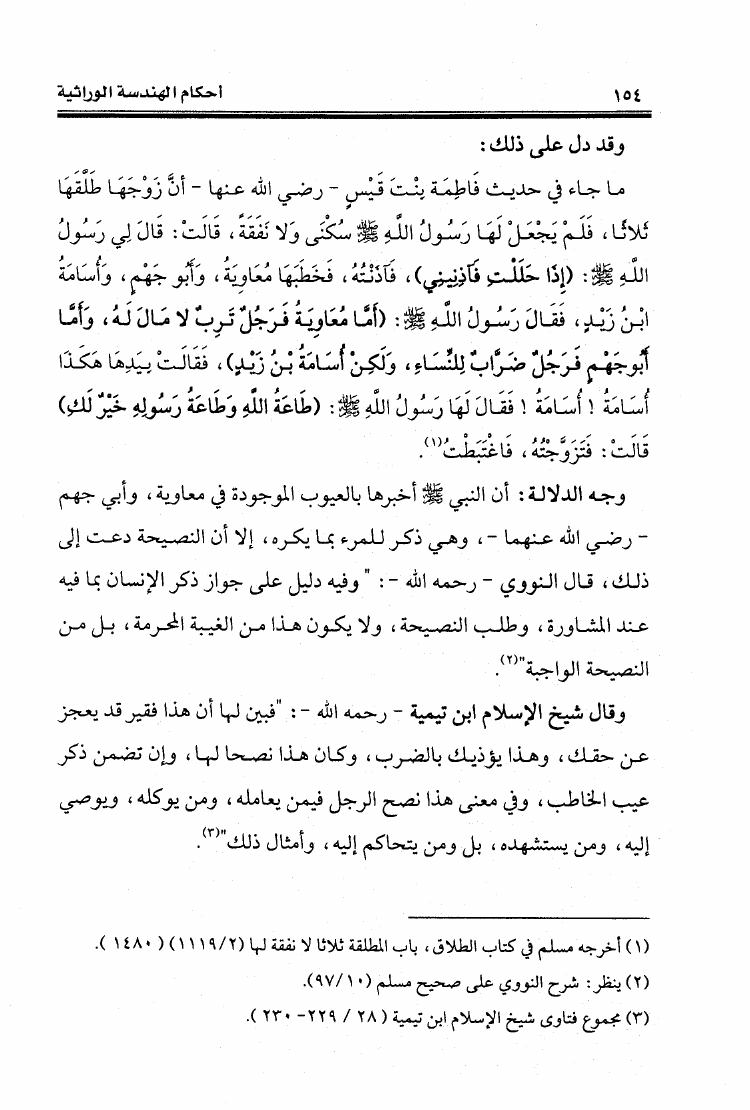 ١٥٤ أحكام الهندسة الوراثية
وقد دل على ذلك:
ما جاء في حديث فَاطِمَة بِنْتَ قَيْسٍ - رضي الله عنها - أنَّ زَوْجَهَا طَلَّقَهَا
ثَلاثًا، فَلَمْ يَجْعَلْ لَهَا رَسُولُ اللَّهِ ﷺ سُكْنَى وَلا نَفَقَةً، قَالَتْ: قَالَ لِي رَسُولُ
اللَّهِ ﷺ: (إِذَا حَلَلْتِ فَآذِنِينِي)، فَآذَنْتُهُ، فَخَطَبَهَا مُعَاوِيَةُ، وَأَبُو جَهْمٍ، وَأُسَامَةُ
ابْنُ زَيْدٍ، فَقَالَ رَسُولُ اللَّهِ ﷺ: (أَمَّا مُعَاوِيَةُ فَرَجُلٌ تَرِبٌ لا مَالَ لَهُ، وَأَمَّا
أَبُوجَهْمٍ فَرَجُلٌ ضَرَّابٌ لِلنِّسَاءِ، وَلَكِنْ أُسَامَةُ بْنُ زَيْدٍ)، فَقَالَتْ بِيَدِهَا هَكَذَا
أُسَامَةُ ! أُسَامَةُ ! فَقَالَ لَهَا رَسُولُ اللَّهِ ﷺ: (طَاعَةُ اللَّهِ وَطَاعَةُ رَسُولِهِ خَيْرٌ لَكِ)
قَالَتْ: فَتَزَوَّجْتُهُ، فَاغْتَبَطْتُ(١).
وجه الدلالة: أن النبي ﷺ أخبرها بالعيوب الموجودة في معاوية، وأبي جهم
- رضي الله عنهما -، وهي ذكر للمرء بما يكره، إلا أن النصيحة دعت إلى
ذلك، قال النووي - رحمه الله -: " وفيه دليل على جواز ذكر الإنسان بما فيه
عند المشاورة، وطلب النصيحة، ولا يكون هذا من الغيبة المحرمة، بل من
النصيحة الواجبة"(٢).
وقال شيخ الإسلام ابن تيمية - رحمه الله -: "فبين لها أن هذا فقير قد يعجز
عن حقك، وهذا يؤذيك بالضرب، وكان هذا نصحا لها، وإن تضمن ذكر
عيب الخاطب، وفي معنى هذا نصح الرجل فيمن يعامله، ومن يوكله، ويوصي
إليه، ومن يستشهده، بل ومن يتحاكم إليه، وأمثال ذلك"(٣).
(١) أخرجه مسلم في كتاب الطلاق، باب المطلقة ثلاثا لا نفقة لها (١١١٩/٢) (١٤٨٠).
(٢) ينظر: شرح النووي على صحيح مسلم (٩٧/١٠).
(٣) مجموع فتاوى شيخ الإسلام ابن تيمية (٢٨ / ٢٢٩- ٢٣٠).